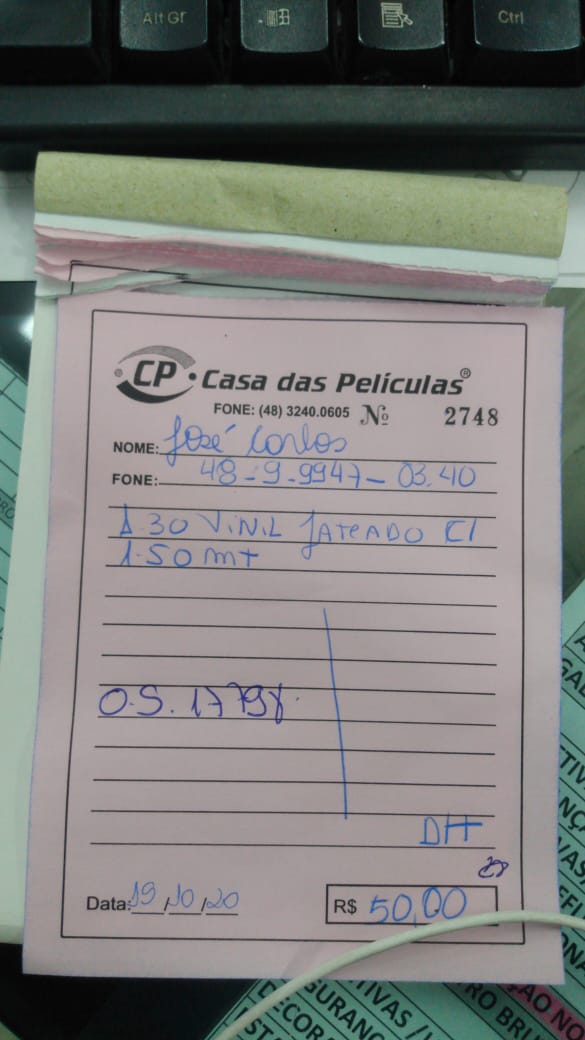 Alt Gr
Ctrl
CP Casa das Películas®
FONE: (48) 3240.0605 Nº 2748
NOME: José Carlos
FONE: 48-9-9947-03.40
1.30 VINIL JATEADO C/
1.50 mt
O.S. 1779
DH
Data: 19/10/20 R$ 50,00